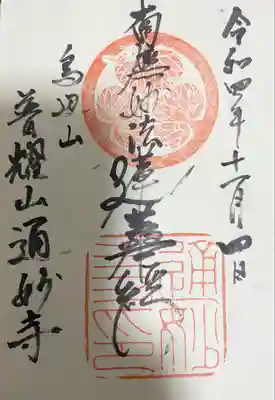 令和四年十一月四日
南無妙法蓮華経
鳥辺山
普耀山通妙寺